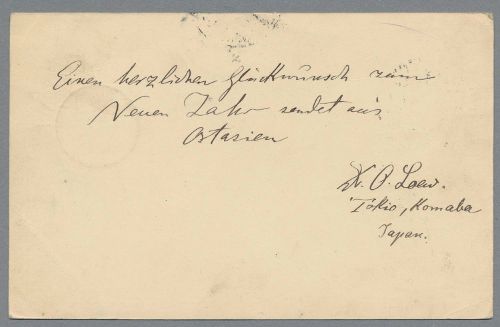 Einen herzlichen Glückwunsch zum
Neuen Jahr sendet aus
Ostasien
Dr. O. Loew.
Tokio, Komaba
Japan.